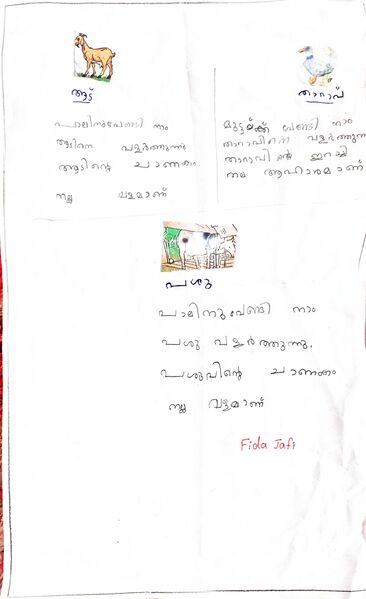 ആട്
പാലിനുവേണ്ടി നാം
ആടിനെ വളർത്തുന്നു
ആടിന്റെ ചാണകം
നല്ല വളമാണ്
താറാവ്
മുട്ടയ്ക്ക് വേണ്ടി നാം
താറാവിനെ വളർത്തുന്നു
താറാവിന്റെ ഇറച്ചി
നല്ല ആഹാരമാണ്
പശു
പാലിനുവേണ്ടി നാം
പശു വളർത്തുന്നു.
പശുവിന്റെ ചാണകം
നല്ല വളമാണ്
Fida Jafi